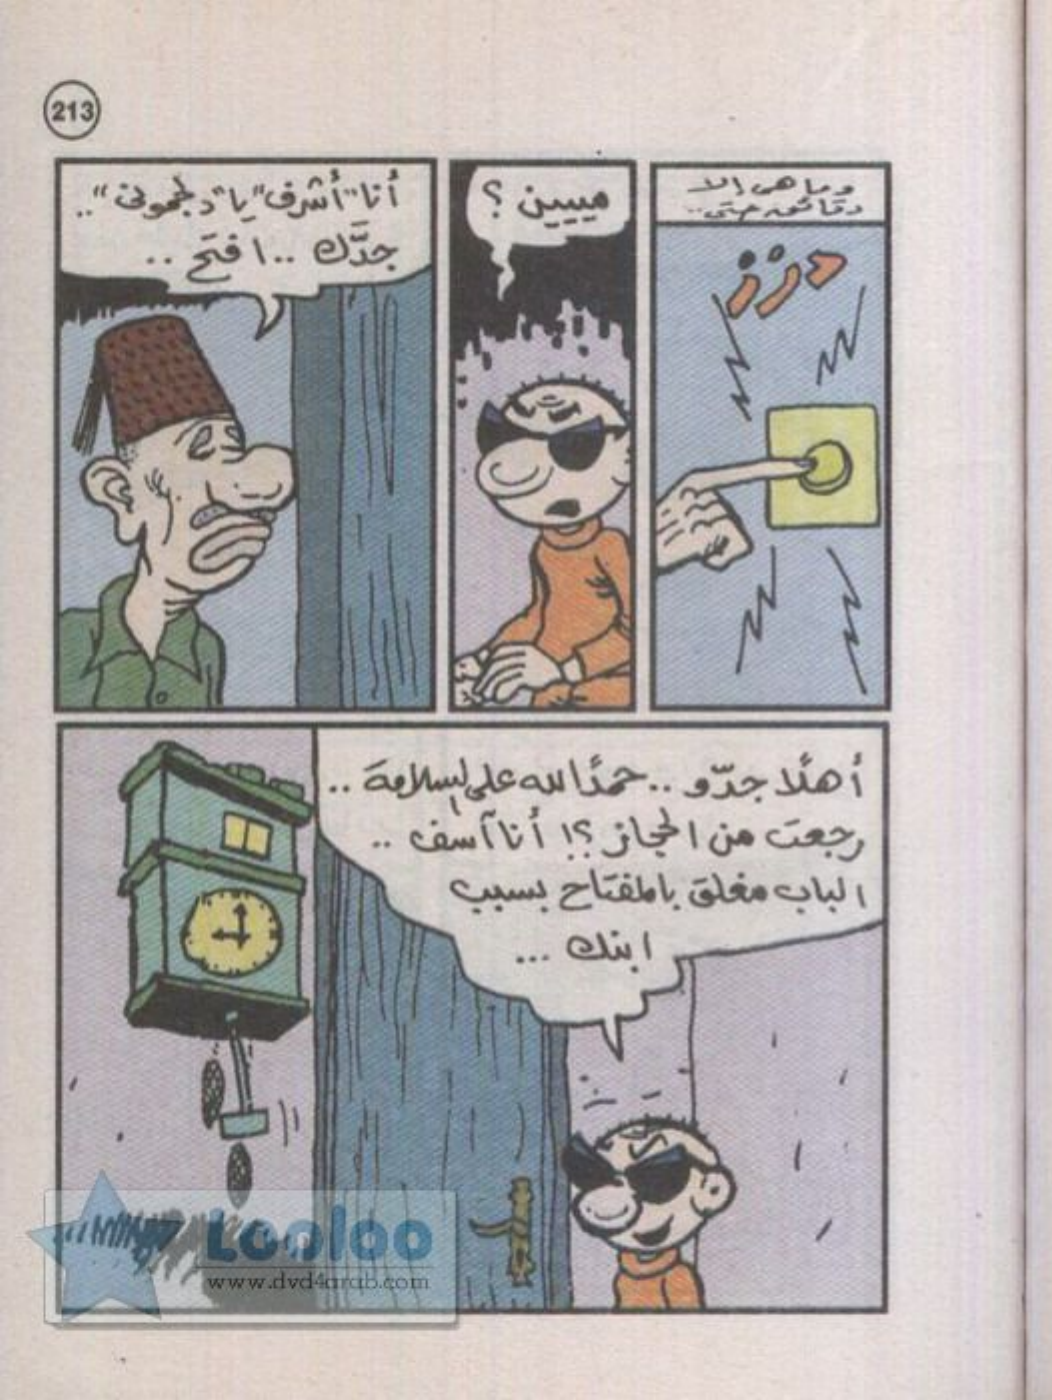 213
وما هى إلا
دقائق حتى..
درزز
مييين ؟
أنا "أشرف" يا "دلجمونى"..
جدَّك .. افتح ..
أهلًا جدّو .. حمدًا لله على السلامة ..
رجعت من الحجاز ؟! أنا آسف ..
الباب مغلق بالمفتاح بسبب
ابنك ...
Looloo
www.dvd4arab.com